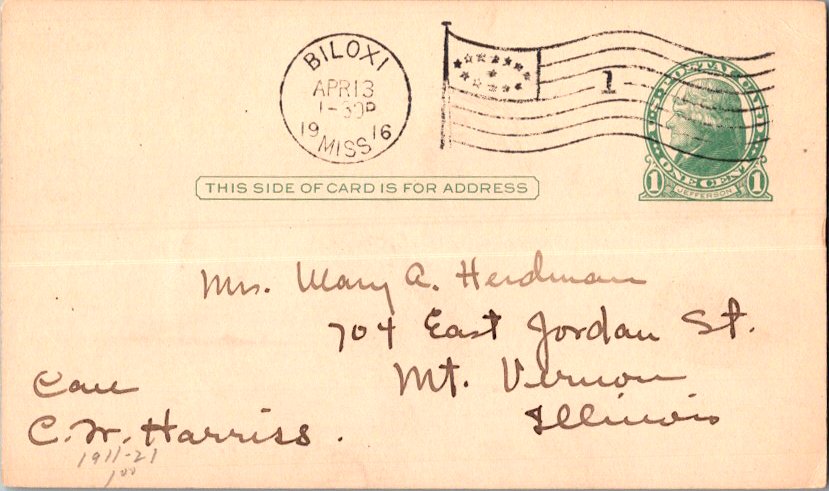 BILOXI
APR 13
1-30P
1916
MISS
1
U.S. POSTAL CARD
ONE CENT
1 JEFFERSON 1
THIS SIDE OF CARD IS FOR ADDRESS
Mrs. Mary A. Herdman
704 East Jordan St.
Mt. Vernon
Illinois
Care
C. W. Harriss.
1911-21
1 00